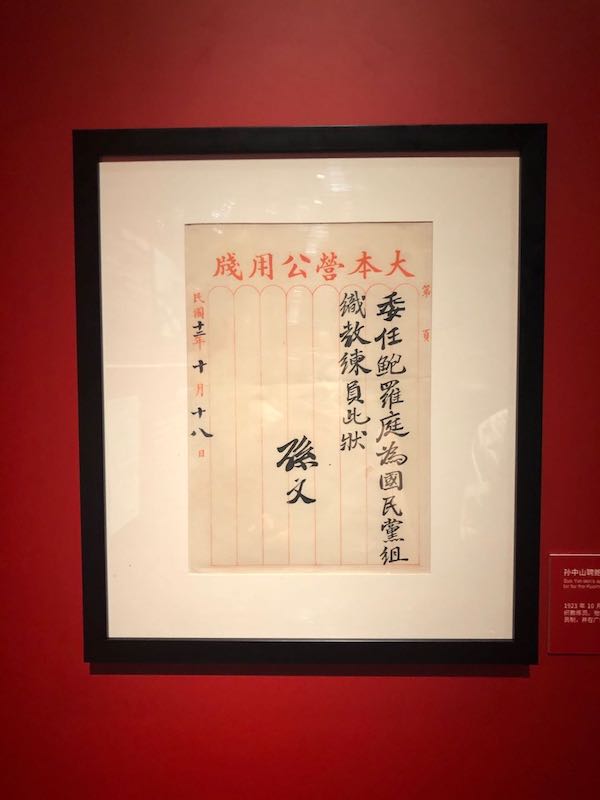 大本營公用牋
第 頁
委任鮑羅庭為國民黨組
織教練員此狀
孫文
民國十二年十月十八日
孙中山聘鲍
Sun Yat-sen's
tor for the Kuomin
1923 年 10 月
织教练员。他
员制，并在广